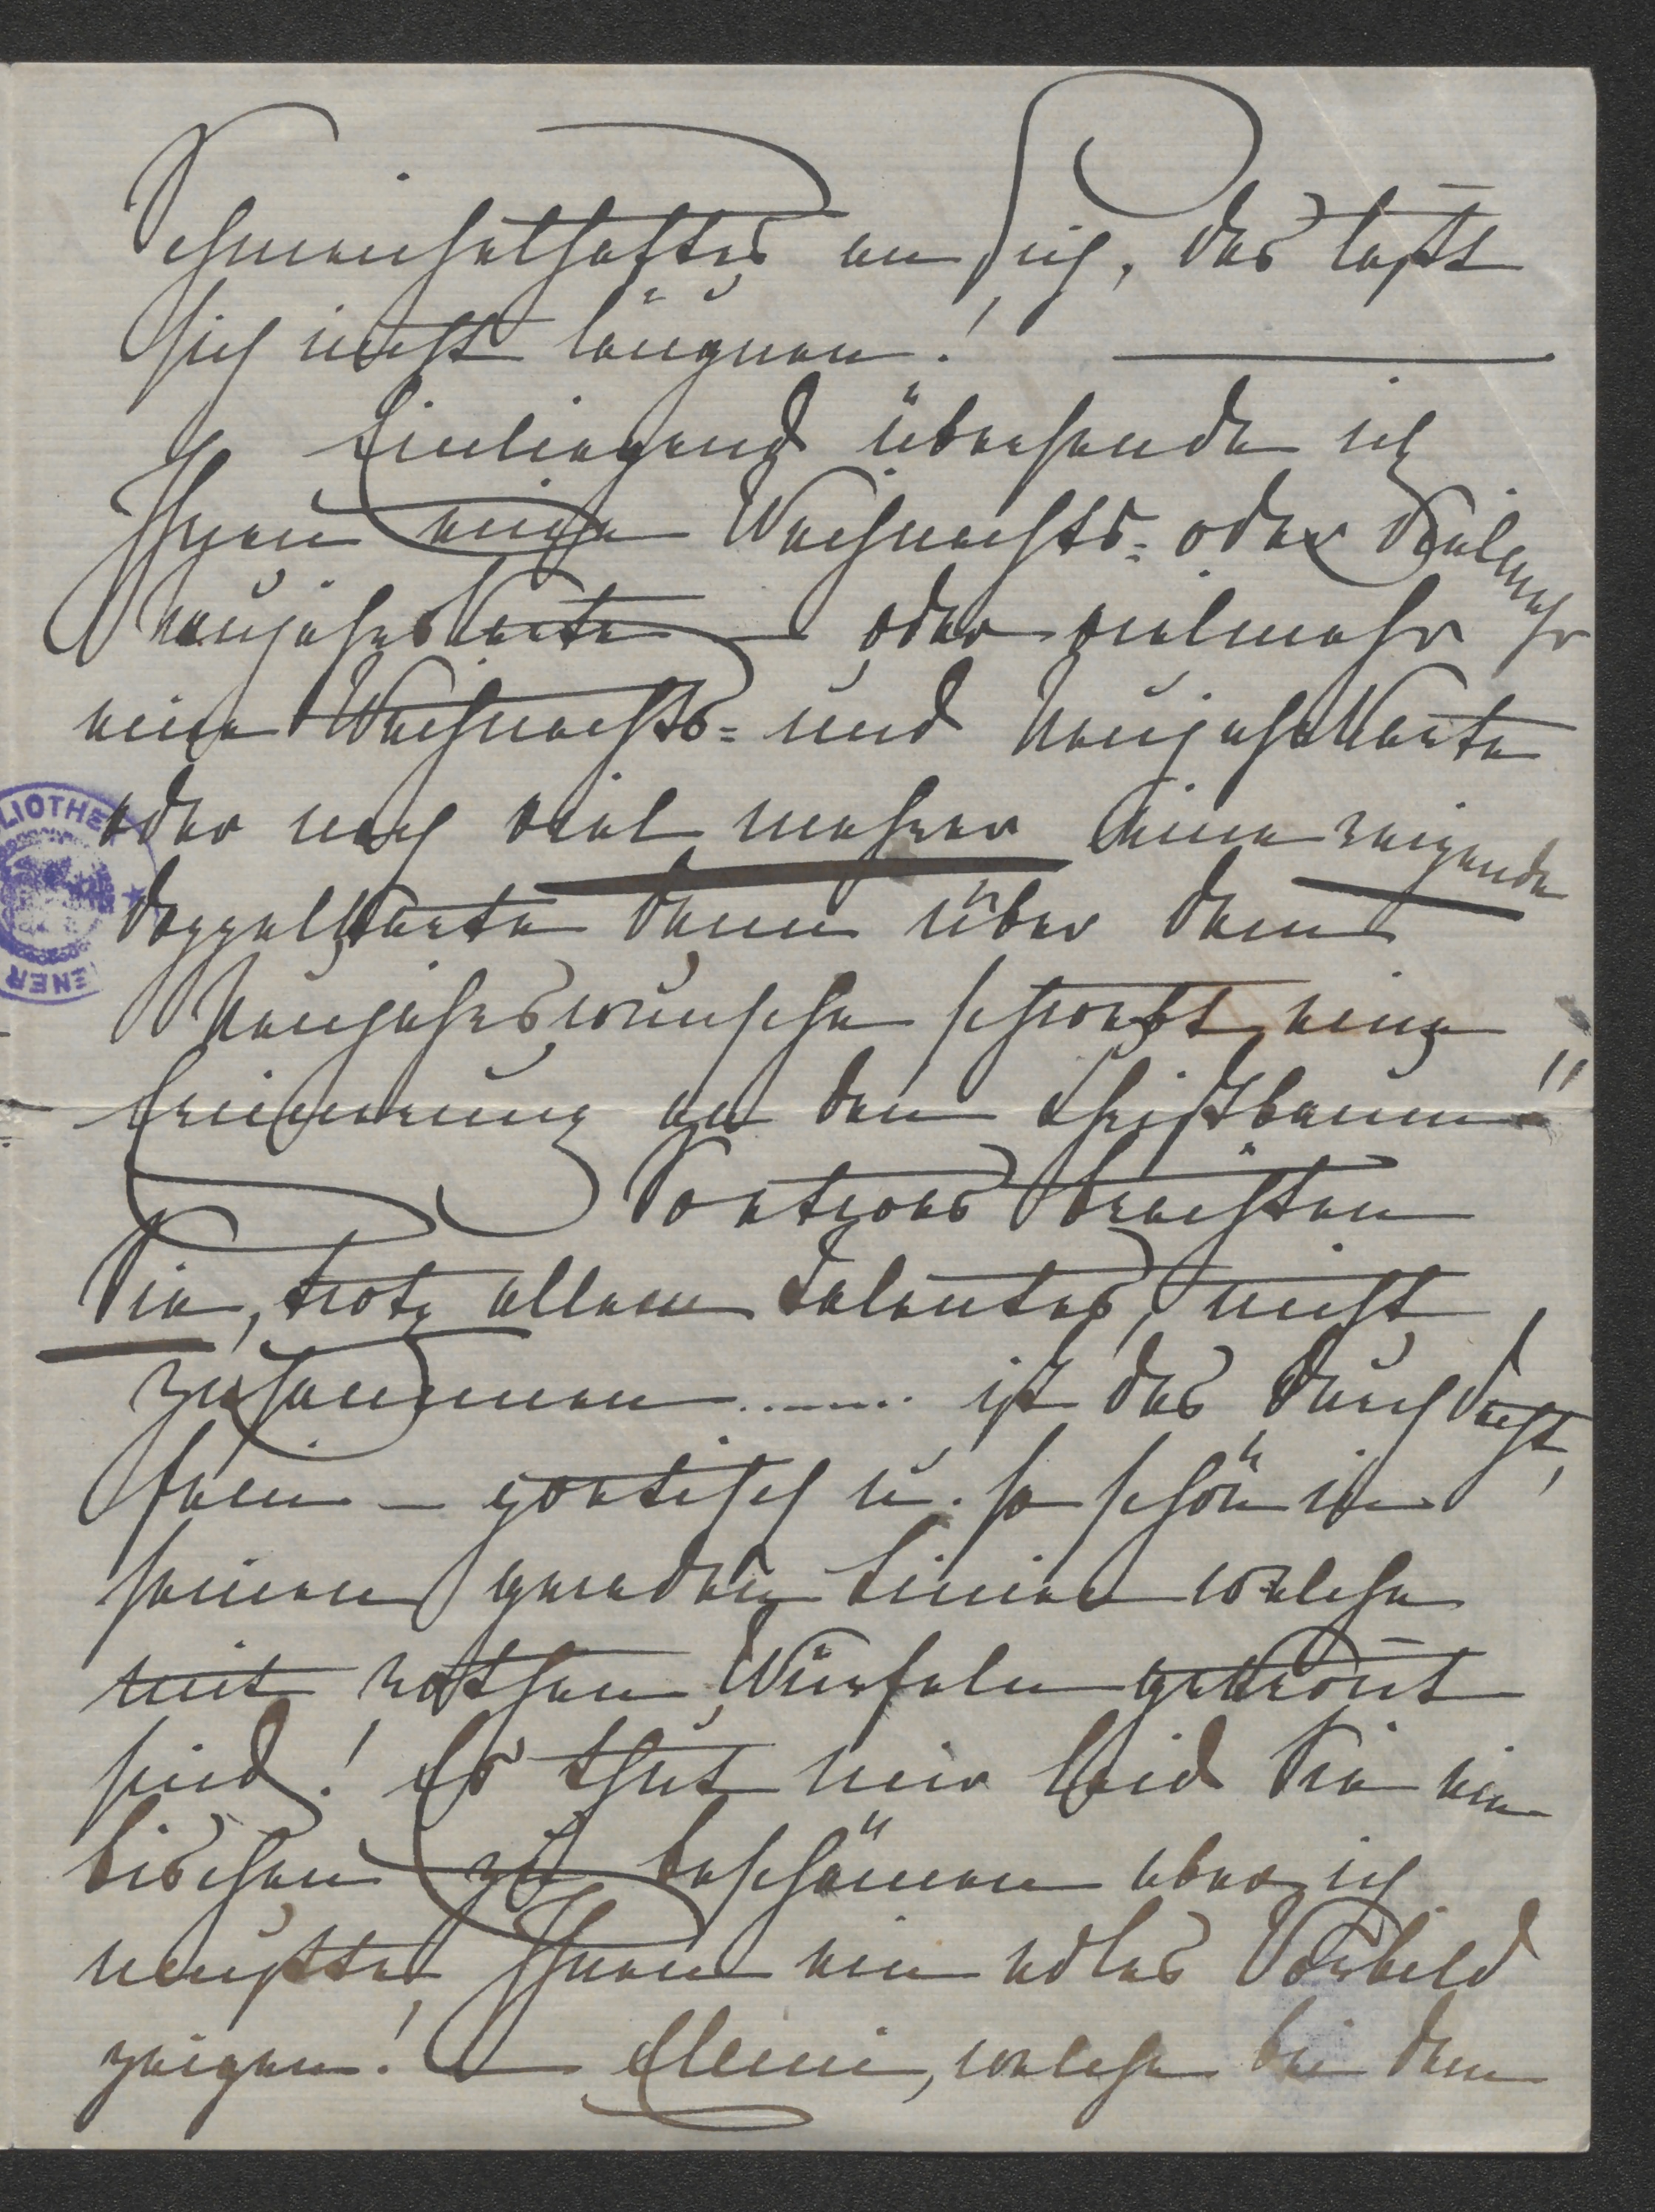 Schmeichelhaftes an sich, das laßt
sich nicht läugnen!
Einliegend übersende ich
Ihnen eine Weihnachts= oder vielmehr
Neujahrskarte – oder vielmehr
eine Weihnachts= und Neujahrskarte
oder noch viel mehrer eine reizende
Doppelkarte denn über dem
Neujahrswunsche schwebt eine
Erinnerung an den Christbaum!!
So etwas brächten
Sie, trotz allem Talentes, nicht
zusammen ........ ist das durchdacht,
fein – poetisch u. so schön in
seinen geraden Linien welche
mit rothen Würfeln gekrönt
sind! Es thut mir leid Sie ein
bischen zu beschämen aber ich
mußte Ihnen ein edles Vorbild
zeigen! – Clemi, welche bei dem
LIOTHE
ENER